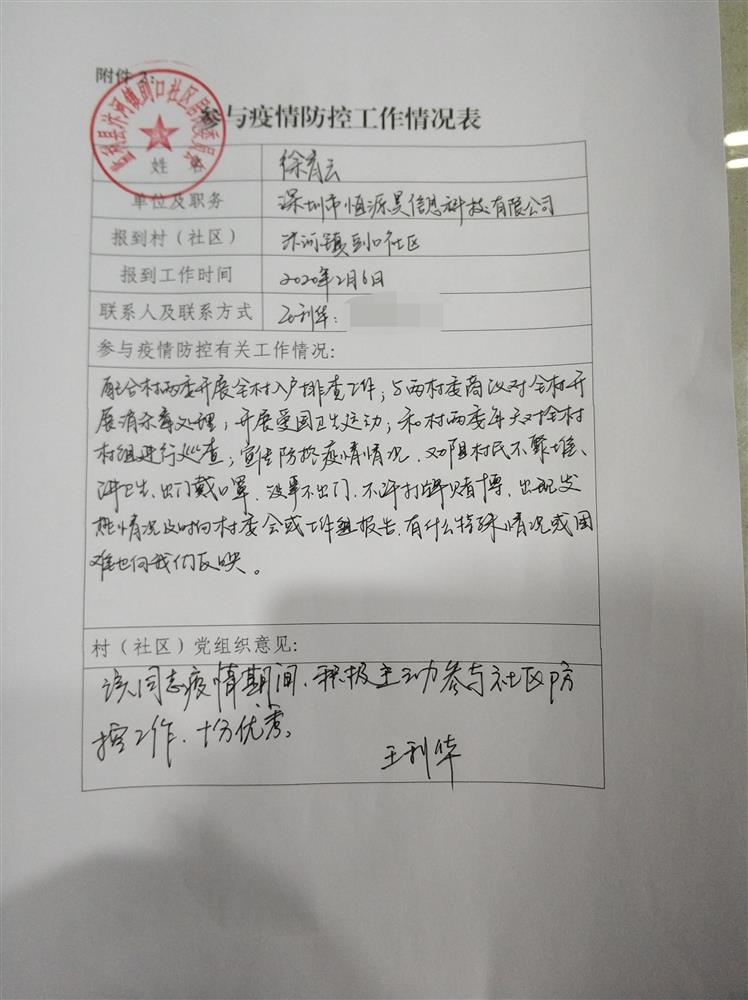 附件 2:
参与疫情防控工作情况表
姓 名 徐有云
单位及职务 深圳市恒源昊信息科技有限公司
报到村（社区） 汴河镇剅口社区
报到工作时间 2020年2月6日
联系人及联系方式 王利华：
参与疫情防控有关工作情况:
配合村两委开展全村入户排查工作；与两村委商议对全村开
展消杀毒处理；开展爱国卫生运动；和村两委每天对全村
村组进行巡查；宣传防控疫情情况、劝阻村民不聚堆、
讲卫生、出门戴口罩、没事不出门、不许打牌赌博、出现发
热情况及时向村委会或工作组报告、有什么特殊情况或困
难也向我们反映。
村（社区）党组织意见:
该同志疫情期间、积极主动参与社区防
控工作、十分优秀。
王利华
监利县汴河镇剅口社区居民委员会